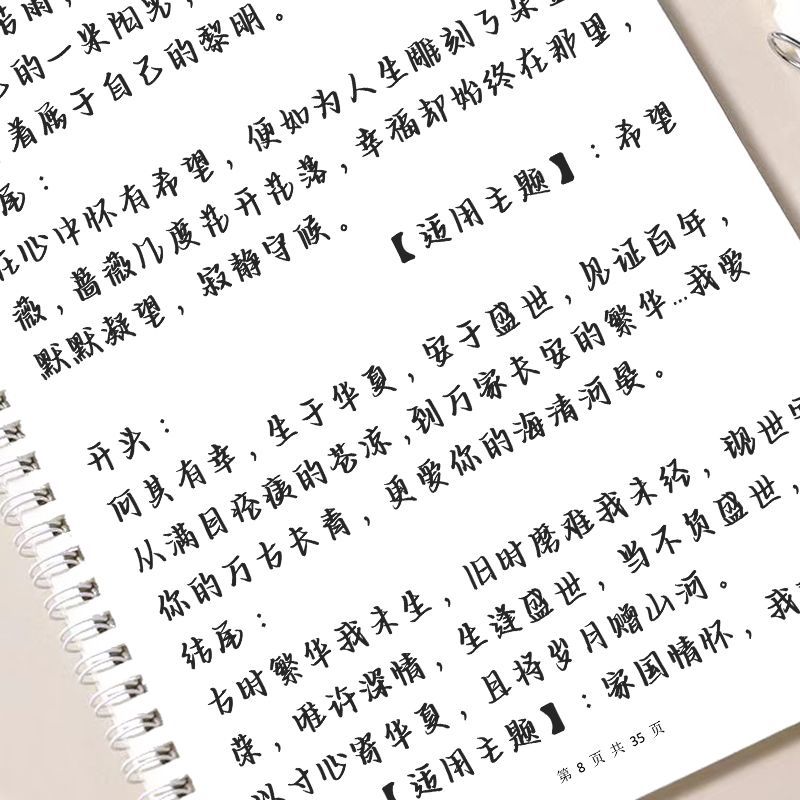 苦雨，
己的一米阳光，
着属于自己的黎明。
尾：
在心中怀有希望，便如为人生雕刻了朵
薇，蔷薇几度花开花落，幸福却始终在那里，
默默凝望，寂静守候。
【适用主题】：希望
开头：
何其有幸，生于华夏，安于盛世，见证百年，
从满目疮痍的苍凉,到万家长安的繁华...我爱
你的万古长青，更爱你的海清河晏。
结尾：
古时繁华我未生，旧时磨难我未经，现世
荣，唯许深情，生逢盛世，当不负盛世，
以寸心寄华夏，且将岁月赠山河。
【适用主题】：家国情怀，我
第 8 页 共 35 页